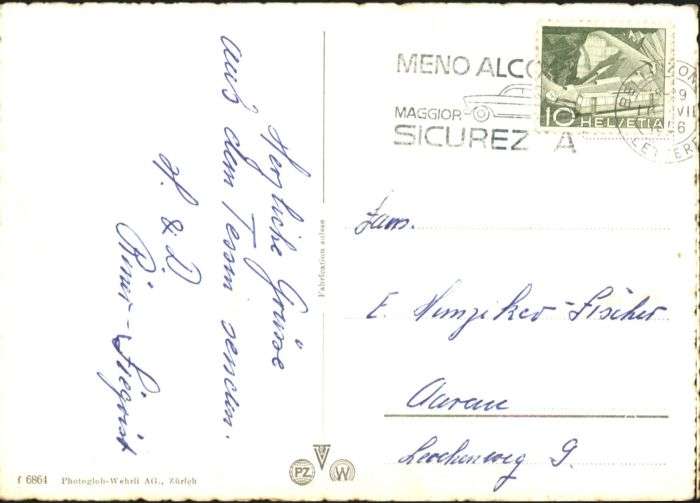 Herzliche Grüsse
aus dem Tessin senden.
H. & D.
Riner-Siegrist
f 6864 Photoglob-Wehrli AG., Zürich
Fabrication suisse
PZ W
MENO ALCO
MAGGIOR
SICUREZ A
10 HELVETIA
LETTERE
Fam.
E. Hunziker-Fischer
Aarau
Lerchenweg 9.